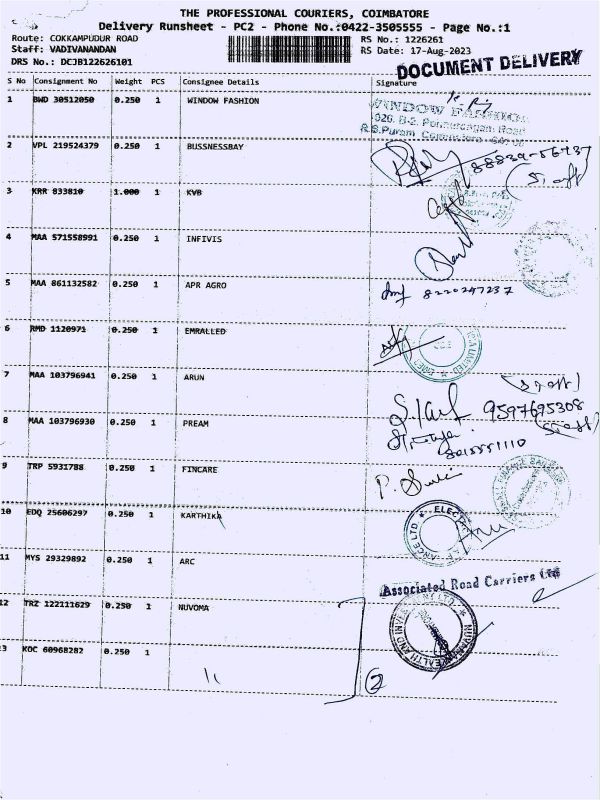 THE PROFESSIONAL COURIERS, COIMBATORE
Delivery Runsheet - PC2 - Phone No.:0422-3505555 - Page No.:1
Route: COKKAMPUDUR ROAD
RS No.: 1226261
Staff: VADIVANANDAN
RS Date: 17-Aug-2023
DRS No.: DCJB122626101
DOCUMENT DELIVERY
S No Consignment No Weight PCS Consignee Details Signature
1 BWD 30512050 0.250 1 WINDOW FASHION
WINDOW FASHION
R.S.Puram
2 VPL 219524379 0.250 1 BUSSNESSBAY
88839-56737
(Staff)
3 KRR 833810 1.000 1 KVB
4 MAA 571558991 0.250 1 INFIVIS
5 MAA 861132582 0.250 1 APR AGRO
8220247237
6 RMD 1120971 0.250 1 EMRALLED
7 MAA 103796941 0.250 1 ARUN
(Staff)
9597695308
8 MAA 103796930 0.250 1 PREAM
(Staff)
9 TRP 5931788 0.250 1 FINCARE
10 EDQ 25606297 0.250 1 KARTHIKA
11 MYS 29329892 0.250 1 ARC
Associated Road Carriers Ltd
12 TRZ 122111629 0.250 1 NUVOMA
13 KOC 60968282 0.250 1
2